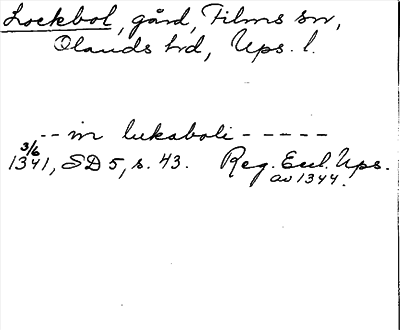 Lockbol, gård, Films sn,
Olands hd, Ups. l.
-- in luksaboli -----
3/6
1341, SD 5, s. 43. Reg. Eccl. Ups.
av 1344.